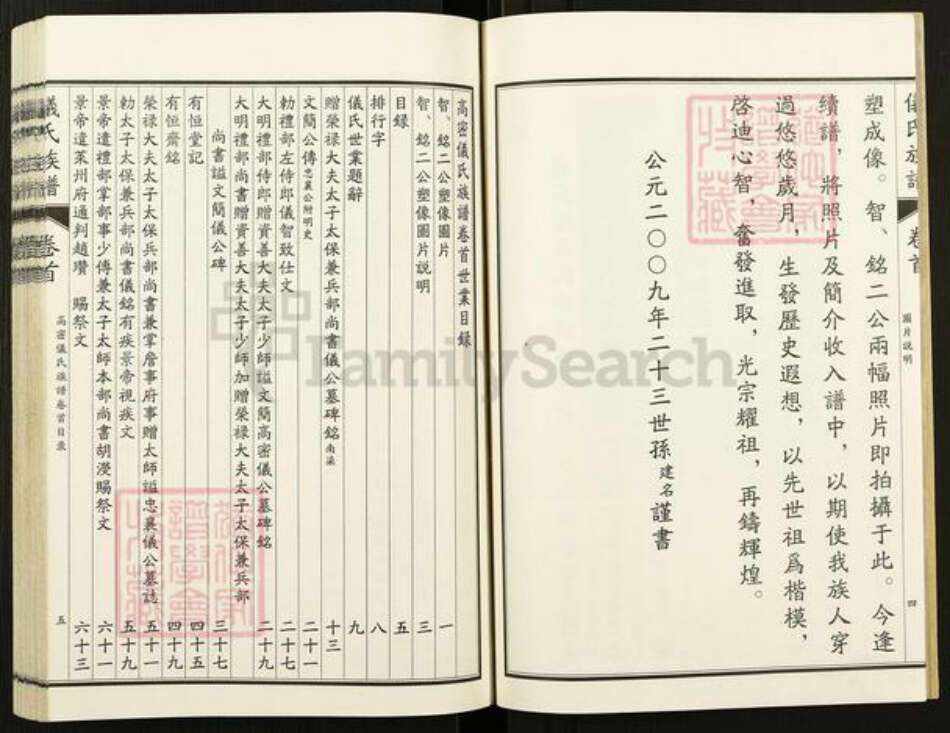 塑成像。智、銘二公兩幅照片即拍攝于此。今逢
續譜，將照片及簡介收入譜中，以期使我族人穿
過悠悠歲月，生發歷史遐想，以先世祖爲楷模，
啓迪心智，奮發進取，光宗耀祖，再鑄輝煌。
公元二〇〇九年二十三世孫建名謹書
儀氏族譜 卷首 圖片說明 四
高密儀氏族譜卷首世業目錄
智、銘二公塑像圖片 一
智、銘二公塑像圖片說明 三
目錄 五
排行字 八
儀氏世業題辭 九
贈榮祿大夫太子太保兼兵部尚書儀公墓碑銘南梁 十三
文簡公傳忠襄公附明史 二十一
勅禮部左侍郎儀智致仕文 二十七
大明禮部侍郎贈資善大夫太子少師謚文簡高密儀公墓碑銘 二十九
大明禮部尚書贈資善大夫太子少師加贈榮祿大夫太子太保兼兵部
尚書謚文簡儀公碑 三十七
有恒堂記 四十五
有恒齋銘 四十九
榮祿大夫太子太保兵部尚書兼掌詹事府事贈太師謚忠襄儀公墓誌 五十一
勅太子太保兼兵部尚書儀銘有疾景帝視疾文 五十九
景帝遣禮部掌部事少傅兼太子太師本部尚書胡濙賜祭文 六十一
景帝遣萊州府通判趙瓚 賜祭文 六十三
儀氏族譜 卷首 高密儀氏族譜卷首目錄 五
FamilySearch